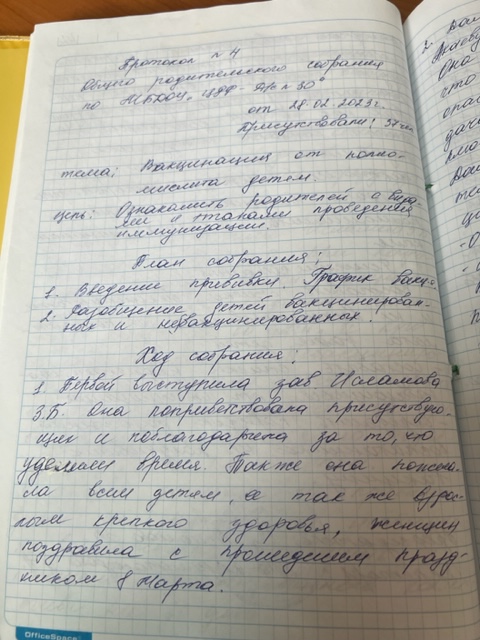 Протокол № 4
Общего родительского собрания
по МБДОУ "ЦРР - д/с № 30"
от 28.02.2023г.
Присутствовали: 37 чел
тема: Вакцинация от полио-
миелита детей.
цель: Ознакомить родителей с вида
ми и этапами проведения
иммунизации.
План собрания:
1. Введение прививки. График вакц.
2. Разобщение детей вакцинирован-
ных и невакцинированных.
Ход собрания:
1. Первой выступила зав Исламова
З.Б. Она поприветствовала присутствую-
щих и поблагодарила за то, что
уделили время. Также она пожела-
ла всем детям, а так же взрос-
лым крепкого здоровья, женщин
поздравила с прошедшим празд-
ником 8 Марта.
2.
Она
что
OfficeSpace